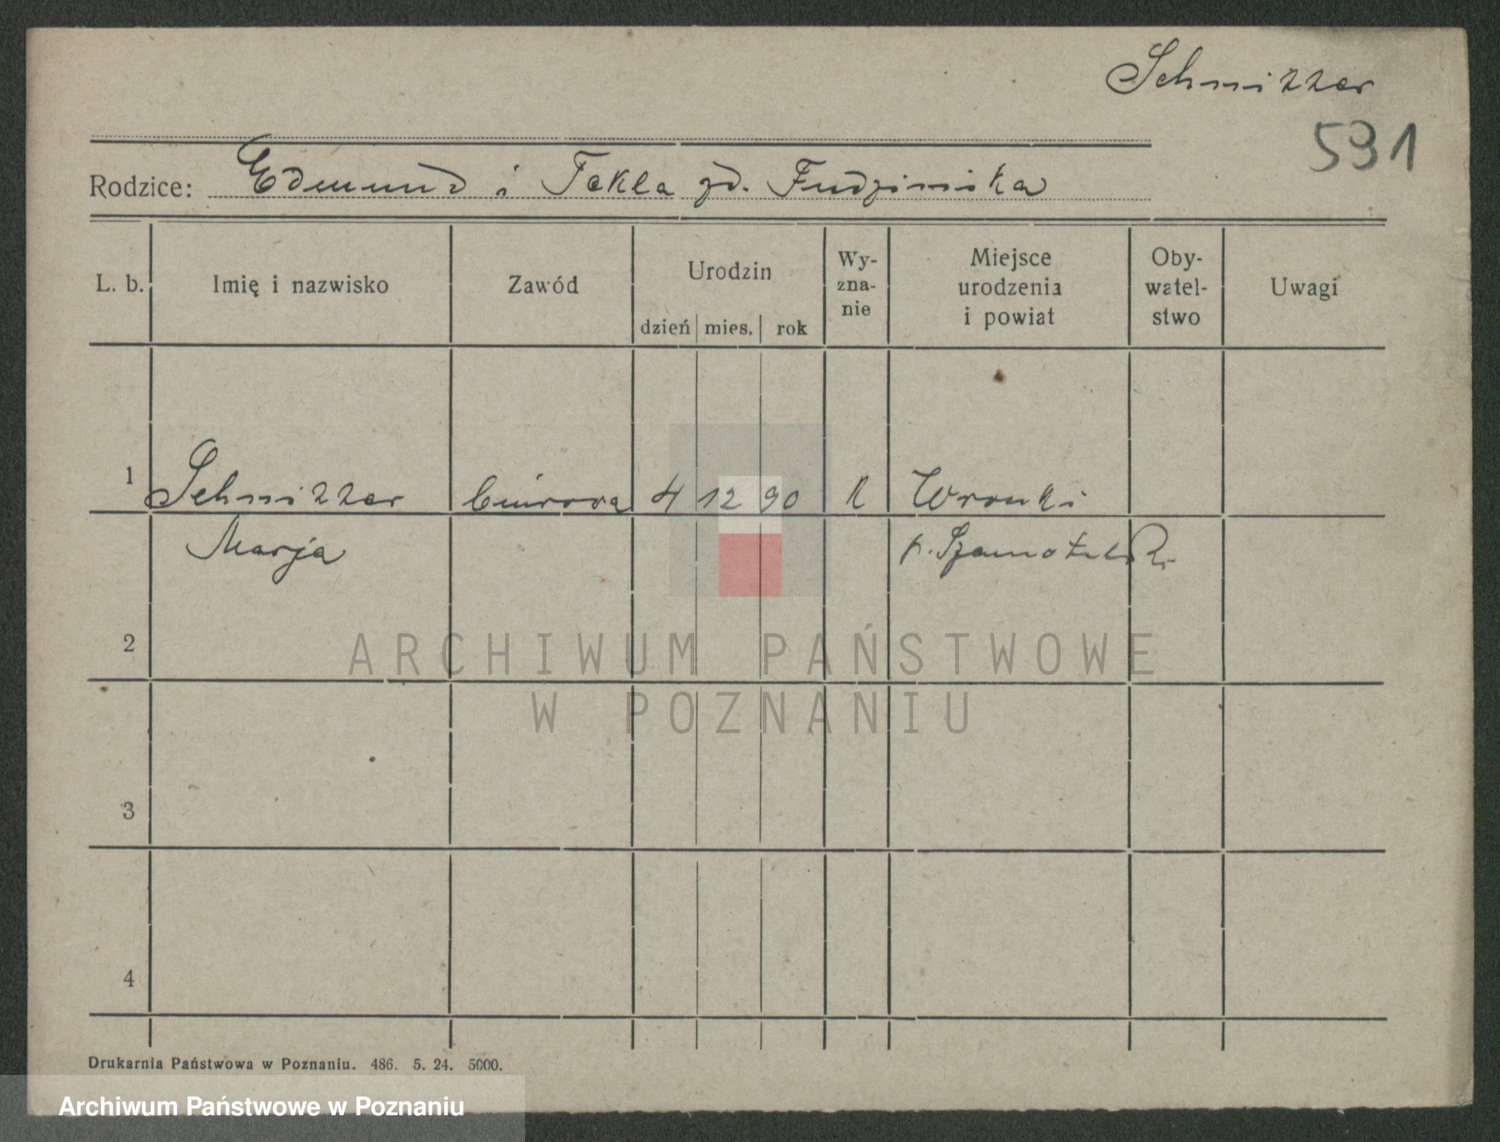 Schnitzer
591
Rodzice: Edmund i Tekla zd. Fudzinska
L. b.
Imię i nazwisko
Zawód
Urodzin
dzień mies. rok
Wy-
zna-
nie
Miejsce
urodzenia
i powiat
Oby-
watel-
stwo
Uwagi
1 Schnitzer biurowa 4 12 90 k Wronki
Marja p. Szamotulski
2
3
4
ARCHIWUM PAŃSTWOWE
W POZNANIU
Drukarnia Państwowa w Poznaniu. 486. 5. 24. 5000.
Archiwum Państwowe w Poznaniu